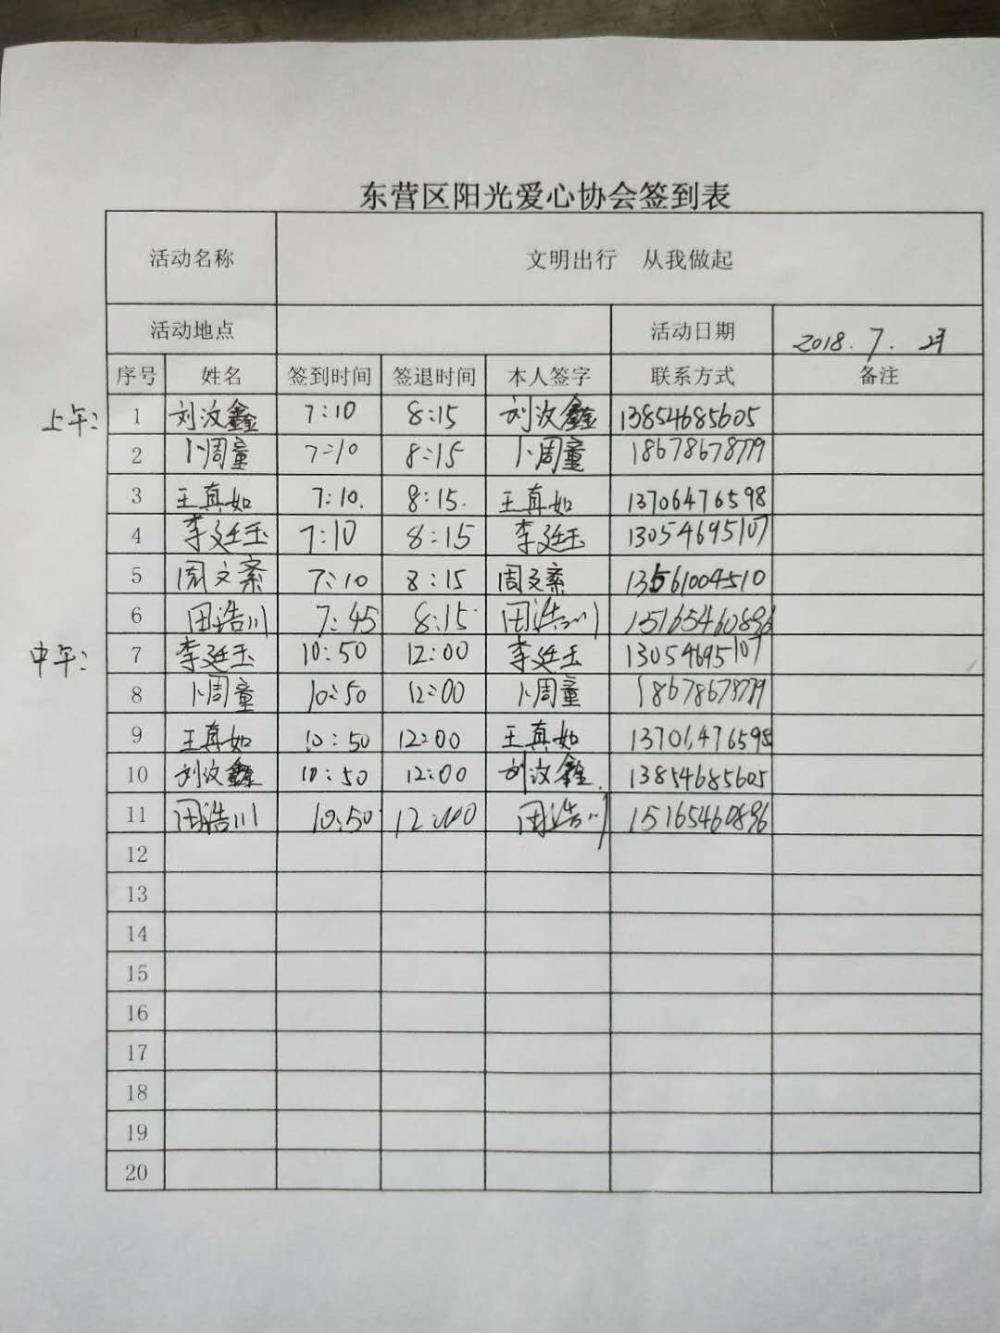 东营区阳光爱心协会签到表
活动名称 文明出行 从我做起
活动地点 活动日期 2018.7.
序号 姓名 签到时间 签退时间 本人签字 联系方式 备注
上午: 1 刘汶鑫 7:10 8:15 刘汶鑫 13854685605
2 卜周童 7:10 8:15 卜周童 18678678779
3 王真如 7:10. 8:15. 王真如 13706476598
4 李廷玉 7:10 8:15 李廷玉 13054695107
5 周文 7:10 8:15 周文 13561004510
6 田浩川 7:45 8:15 田浩川 15165460896
中午: 7 李廷玉 10:50 12:00 李廷玉 13054695107
8 卜周童 10:50 12:00 卜周童 18678678779
9 王真如 10:50 12:00 王真如 13706476598
10 刘汶鑫 10:50 12:00 刘汶鑫. 13854685605
11 田浩川 10:50 12:00 田浩川 15165460896
12
13
14
15
16
17
18
19
20